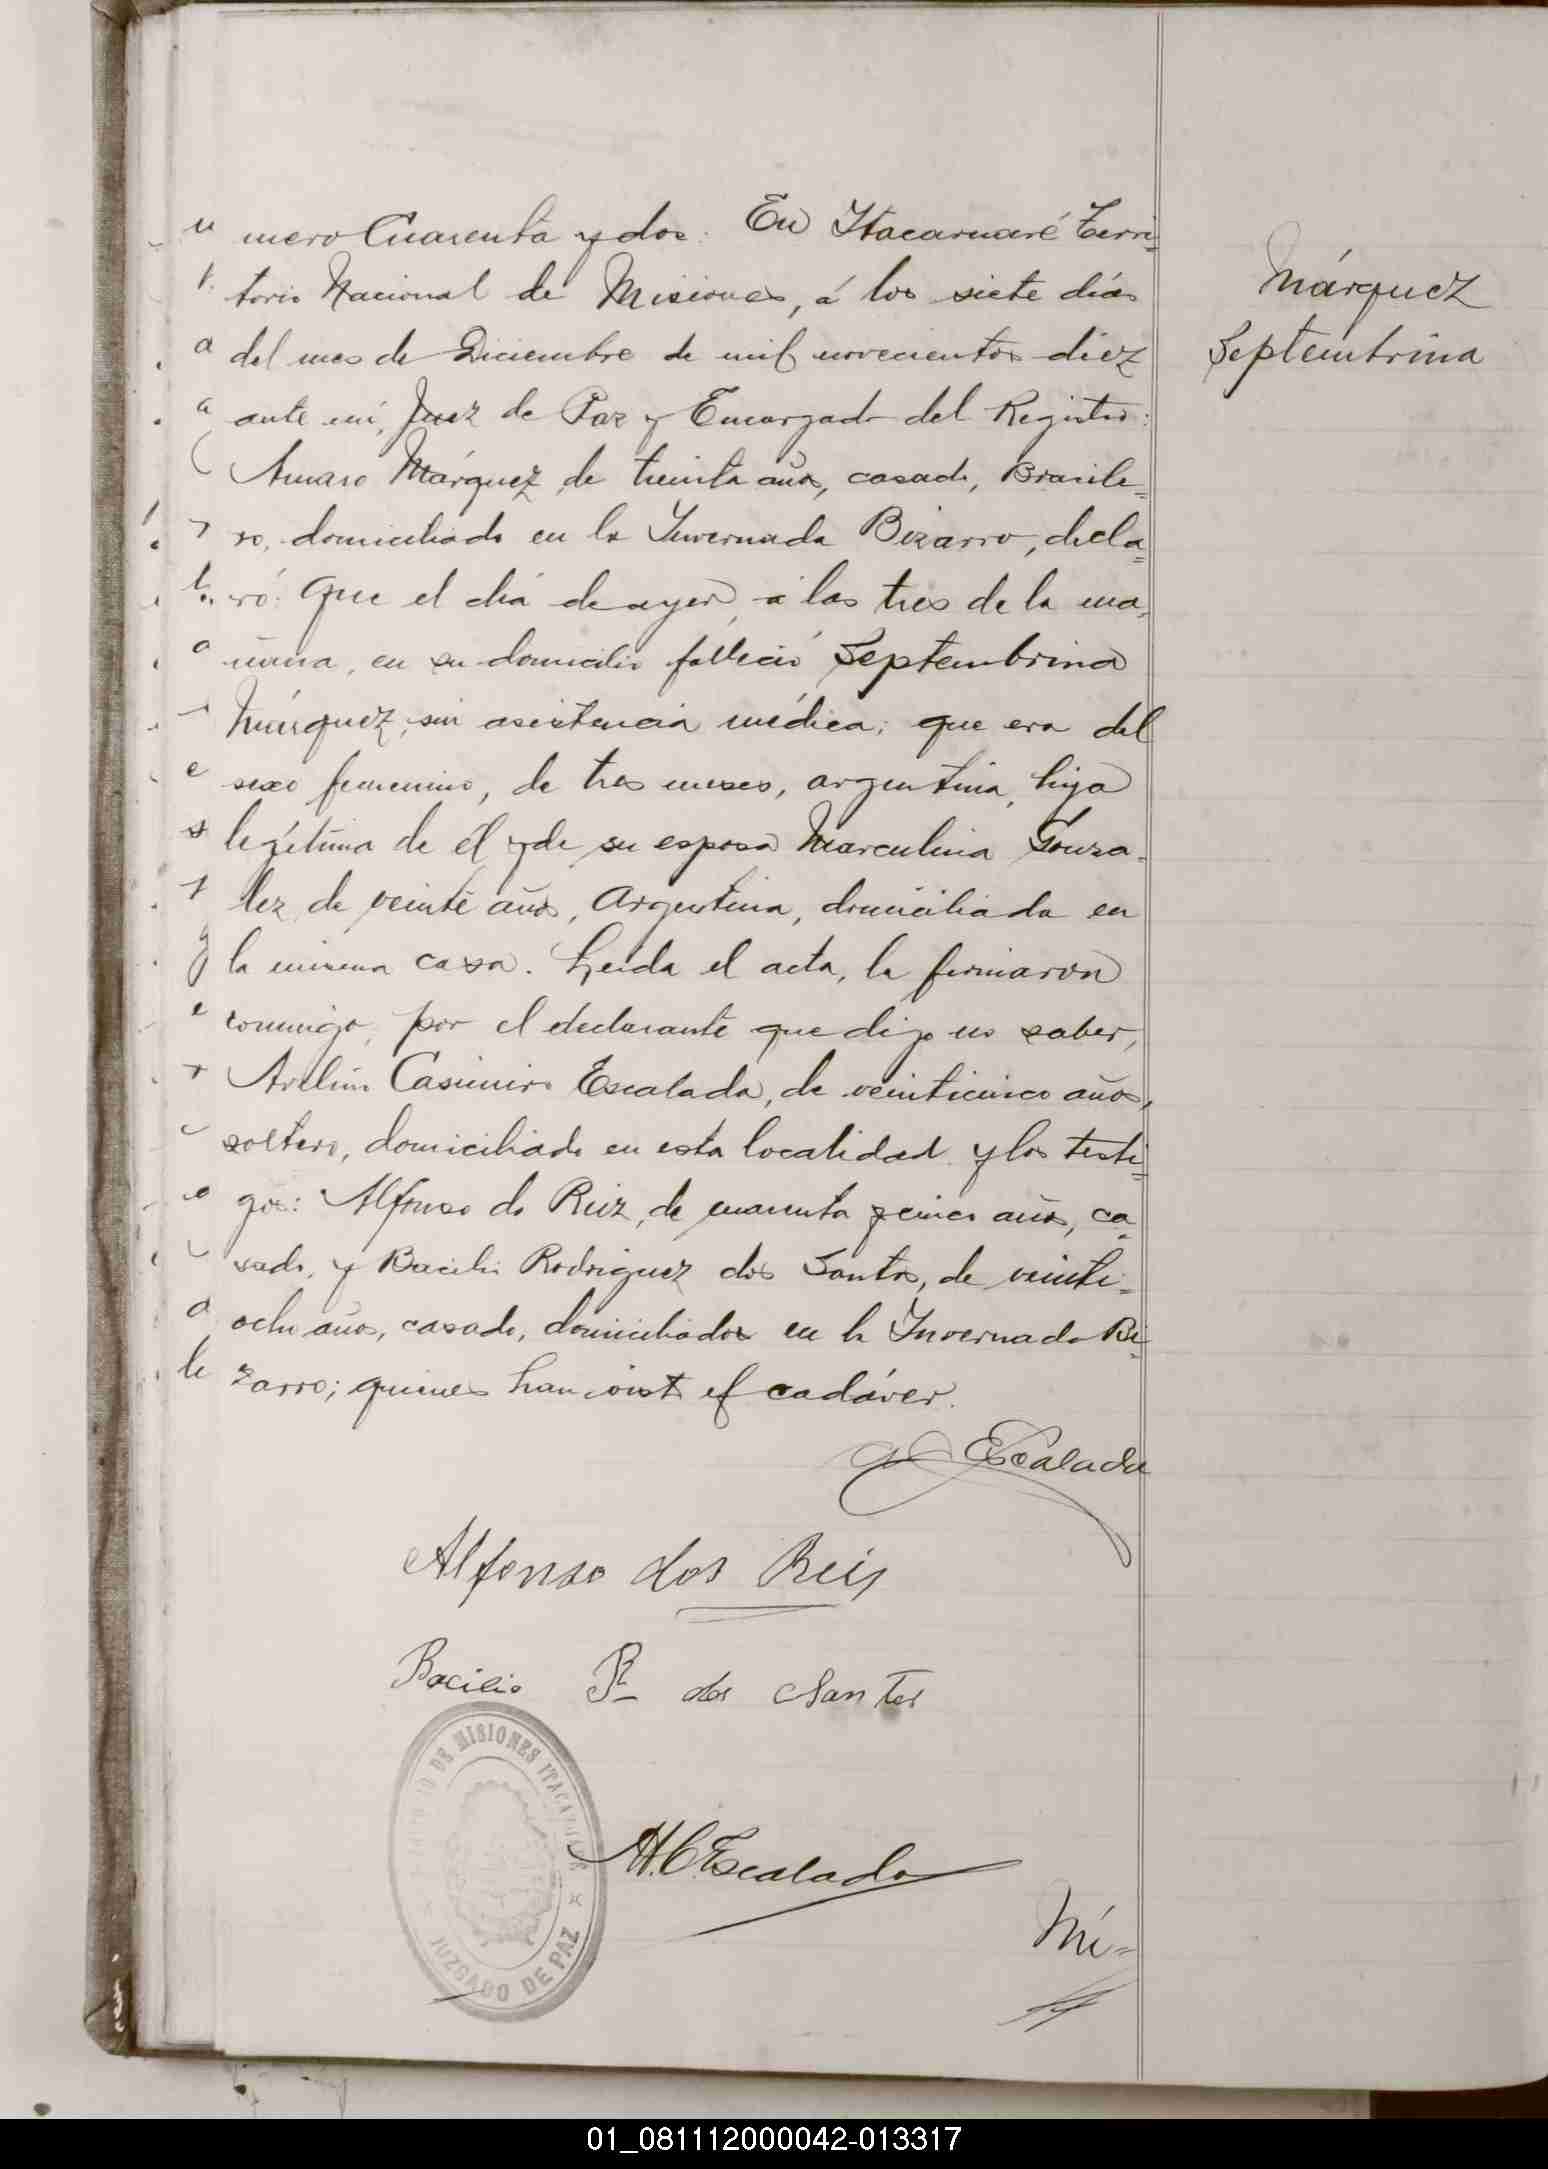 mero Cuarenta y dos. En Itacaruaré Terri-
torio Nacional de Misiones, á los siete dias
del mes de Diciembre de mil novecientos diez
ante mí, Juez de Paz y Encargado del Registro:
Amaro Márquez, de treinta años, casado, Brasile=
ro, domiciliado en la Invernada Bizarro, decla=
ró: Que el día de ayer, á las tres de la ma-
ñana, en su domicilio falleció Septembrina
Márquez, sin asistencia médica; que era del
sexo femenino, de tres meses, argentina, hija
legítima de él y de su esposa Marculina Gonza-
lez de veinte años, Argentina, domiciliada en
la misma casa. Leida el acta, la firmaron
conmigo, por el declarante que dijo no saber,
Avelino Casimiro Escalada, de veinticinco años,
soltero, domiciliado en esta localidad y los testi=
gos: Alfonso do Reiz, de cuarenta y cinco años, ca=
sado, y Bacilio Rodriguez dos Santos, de veinti=
ocho años, casado, domiciliados en la Invernada Bi=
zarro; quienes han visto el cadáver.
Márquez
Septembrina
Escalada
Alfonso dos Reis
Bacilio R dos Santos
DE MISIONES ITACARUARE
JUZGADO DE PAZ
A.C. Escalada
Nú=
01_081112000042-013317